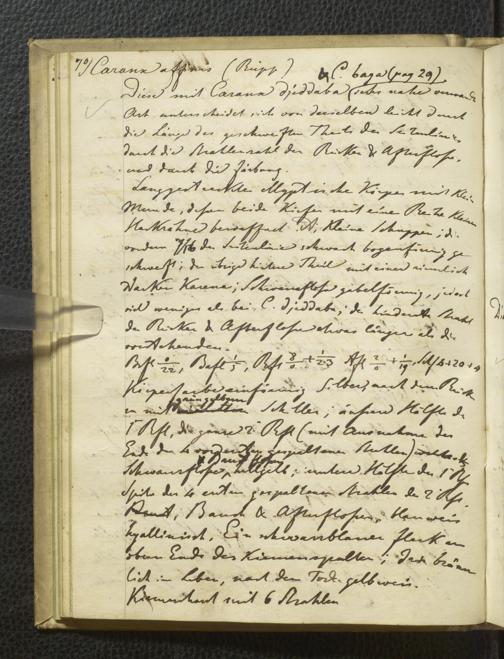 79) Caranx affinis (Rüpp) & C. baga (pag 29)
Diese mit Caranx djeddaba sehr nahe verwandte
Art unterscheidet sich von derselben leicht durch
die Länge des geschweiften Theils der Seitenlinie,
durch die Strahlenzahl der Rücken & Afterflosse
und durch die Färbung.
Langgestreckter elliptischer Körper mit kleinem
Munde, dessen beide Kiefer mit einer Reihe kleiner
bewaffnet. Kleine Schuppen; die
vordern der Seitenlinie schwach bogenförmig ge
schweift; der übrige hintere Theil mit einer ziemlich
starken Carena; Schwanzflosse gabelförmig, jedoch
viel weniger als bei C. djeddaba; die hintersten Strahlen
der Rücken & Afterflosse etwas länger als die
vorstehenden.
Körperfarbe einförmig Silber, nach dem Rücken
zu mit grüngelbem Schiller; äussere Hälfte der
1 Rfl, die ganze 2 Rfl (mit Ausnahme des
Ende der 4 gespaltenen Strahlen)
Schwanzflosse, hellgelb; untere Hälfte der 1 Rfl
Spitze der 4 ersten gespaltenen Strahlen der 2 Rfl.
Brust, Bauch & Afterflossen, blauweis
hyallinisch, Ein schwarzblauer Fleck am
obern Ende des Kiemenspaltes; Iris bräun
lich im Leben, nach dem Tode gelbweis.
Kiemenhaut mit 6 Strahlen